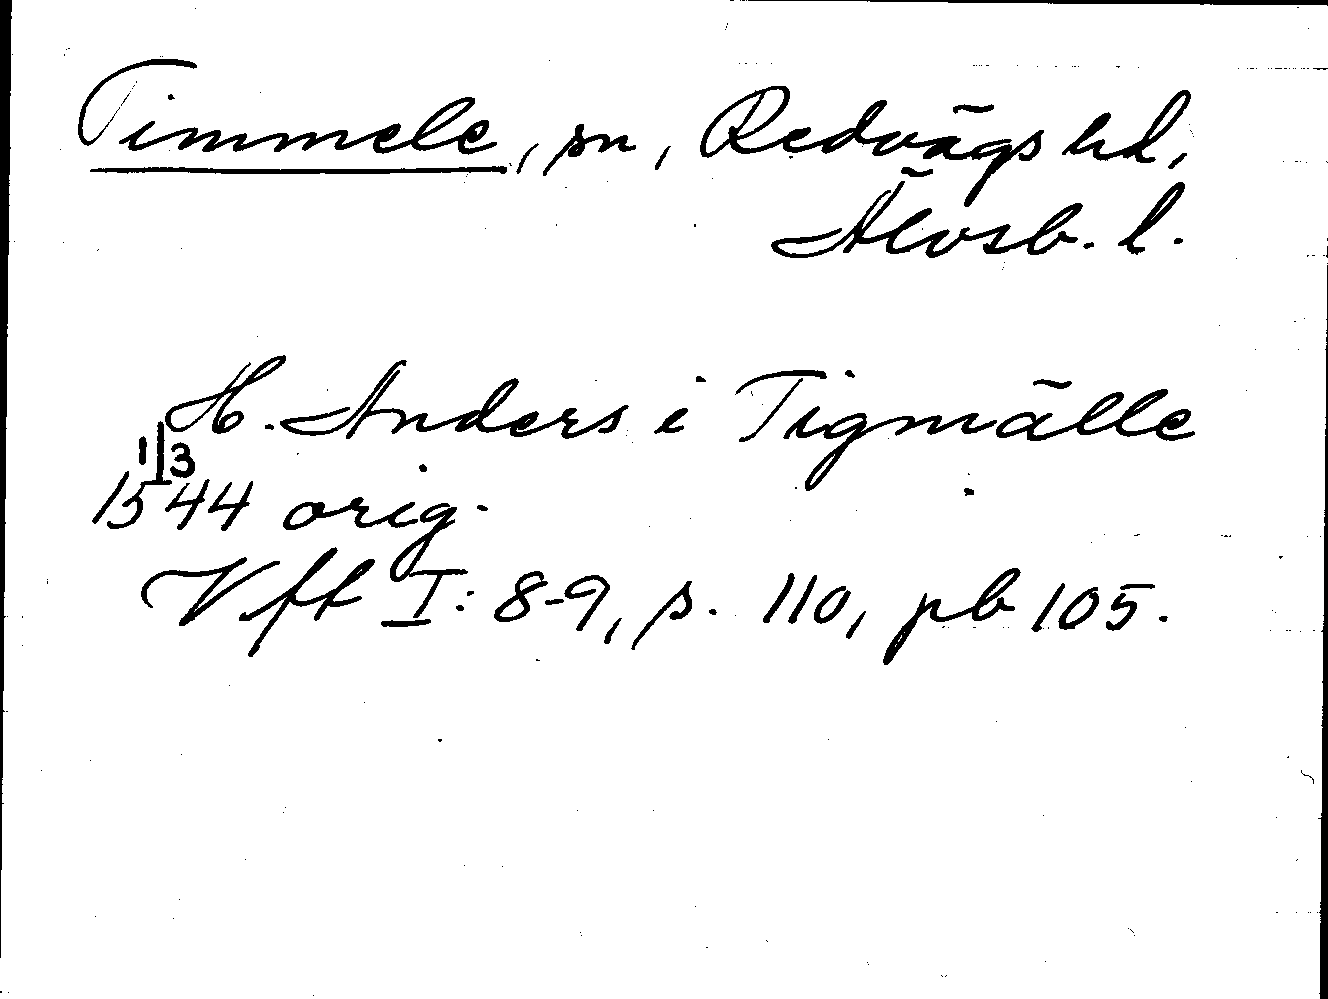 Timmele, sn, Redvägs hd,
Älvsb. l.
H. Anders i Tigmälle
1/3
1544 orig.
Vft I: 8-9, s. 110, pb 105.